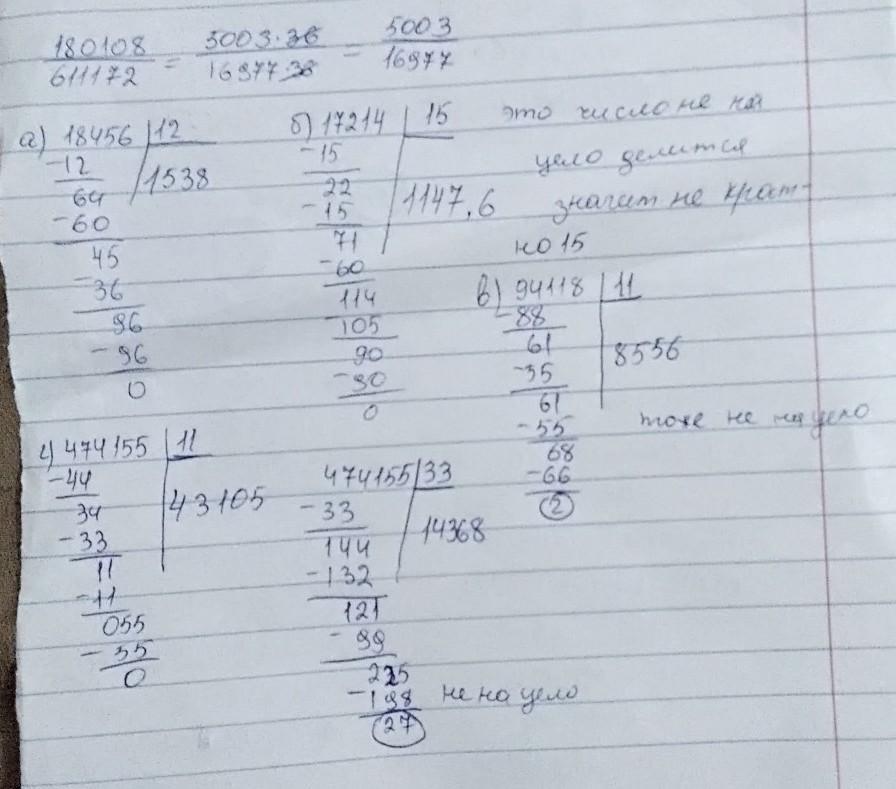 180108/611172 = 5003·36/16977·36 = 5003/16977
а) 18456 | 12
-12
1538
64
-60
45
-36
96
-96
0
б) 17214 | 15
-15
22
1147,6
-15
71
-60
114
105
90
-90
0
это число не на
цело делится
значит не крат-
но 15
в) 94118 | 11
-88
61
8556
-55
61
-55
68
-66
2
тоже не на цело
г) 474155 | 11
-44
43105
34
-33
11
-11
055
-55
0
474155 | 33
-33
14368
144
-132
121
-99
225
-198
27
не на цело